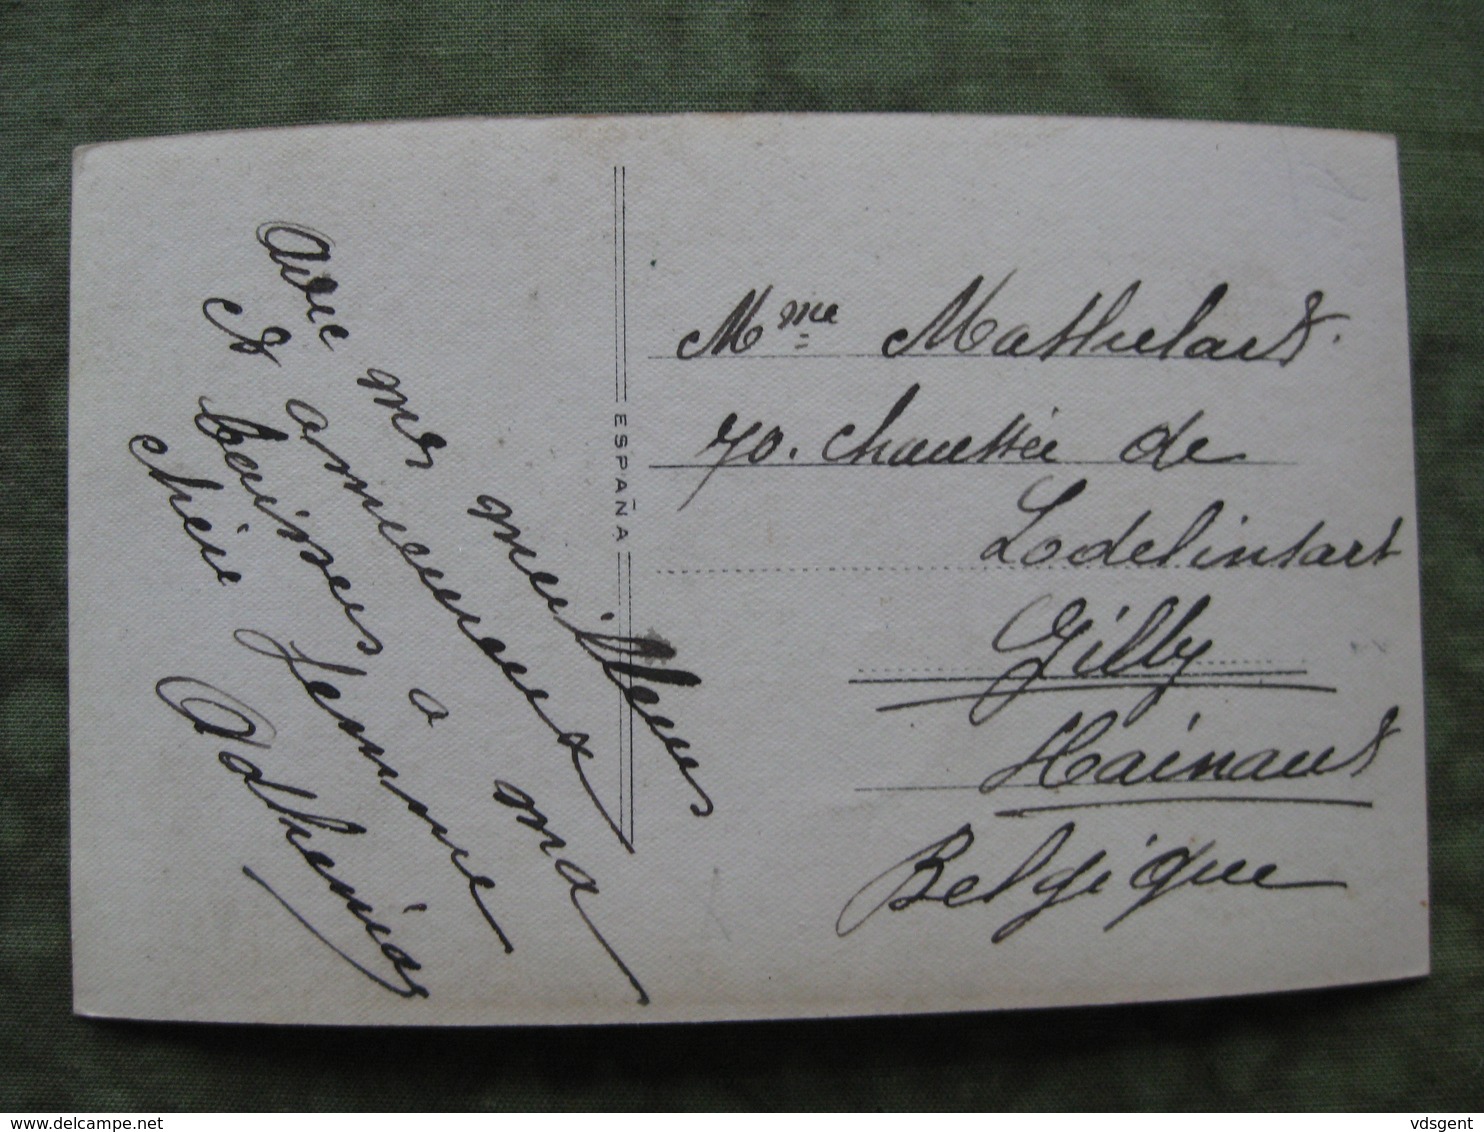 Avec mes meilleurs
et amoureux
baisers a ma
chère femme
Mme Mathelart.
70. Chaussée de
Lodelinsart
Gilly
Hainaut
Belgique
ESPAÑA
delcampe.net
vdsgent